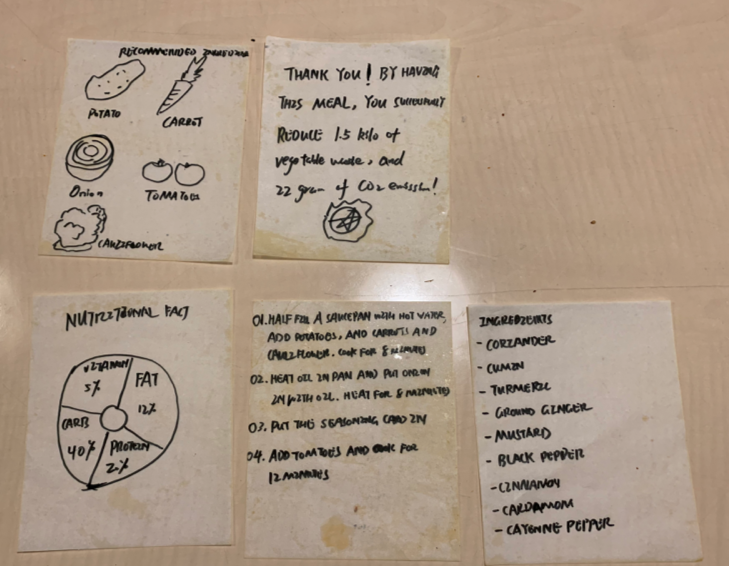 RECOMMENDED
POTATO
CARROT
Onion
TOMATOES
CAULIFLOWER
THANK YOU! BY HAVING
THIS MEAL, YOU SUCCESSFULLY
REDUCE 1.5 kilo of
vegetable waste, and
22 gram of CO2 emission!
NUTRITIONAL FACT
VITAMIN
5%
FAT
12%
CARB
40%
PROTEIN
2%
01. HALF FILL A SAUCEPAN WITH HOT WATER,
ADD POTATOES, AND CARROTS AND
CAULIFLOWER. COOK FOR 8 MINUTES
02. HEAT OIL IN PAN AND PUT ONION
IN WITH OIL. HEAT FOR 8 MINUTES
03. PUT THE SEASONING CARD IN
04. ADD TOMATOES AND COOK FOR
12 MINUTES
INGREDIENTS
- CORIANDER
- CUMIN
- TURMERIC
- GROUND GINGER
- MUSTARD
- BLACK PEPPER
- CINNAMON
- CARDAMOM
- CAYENNE PEPPER